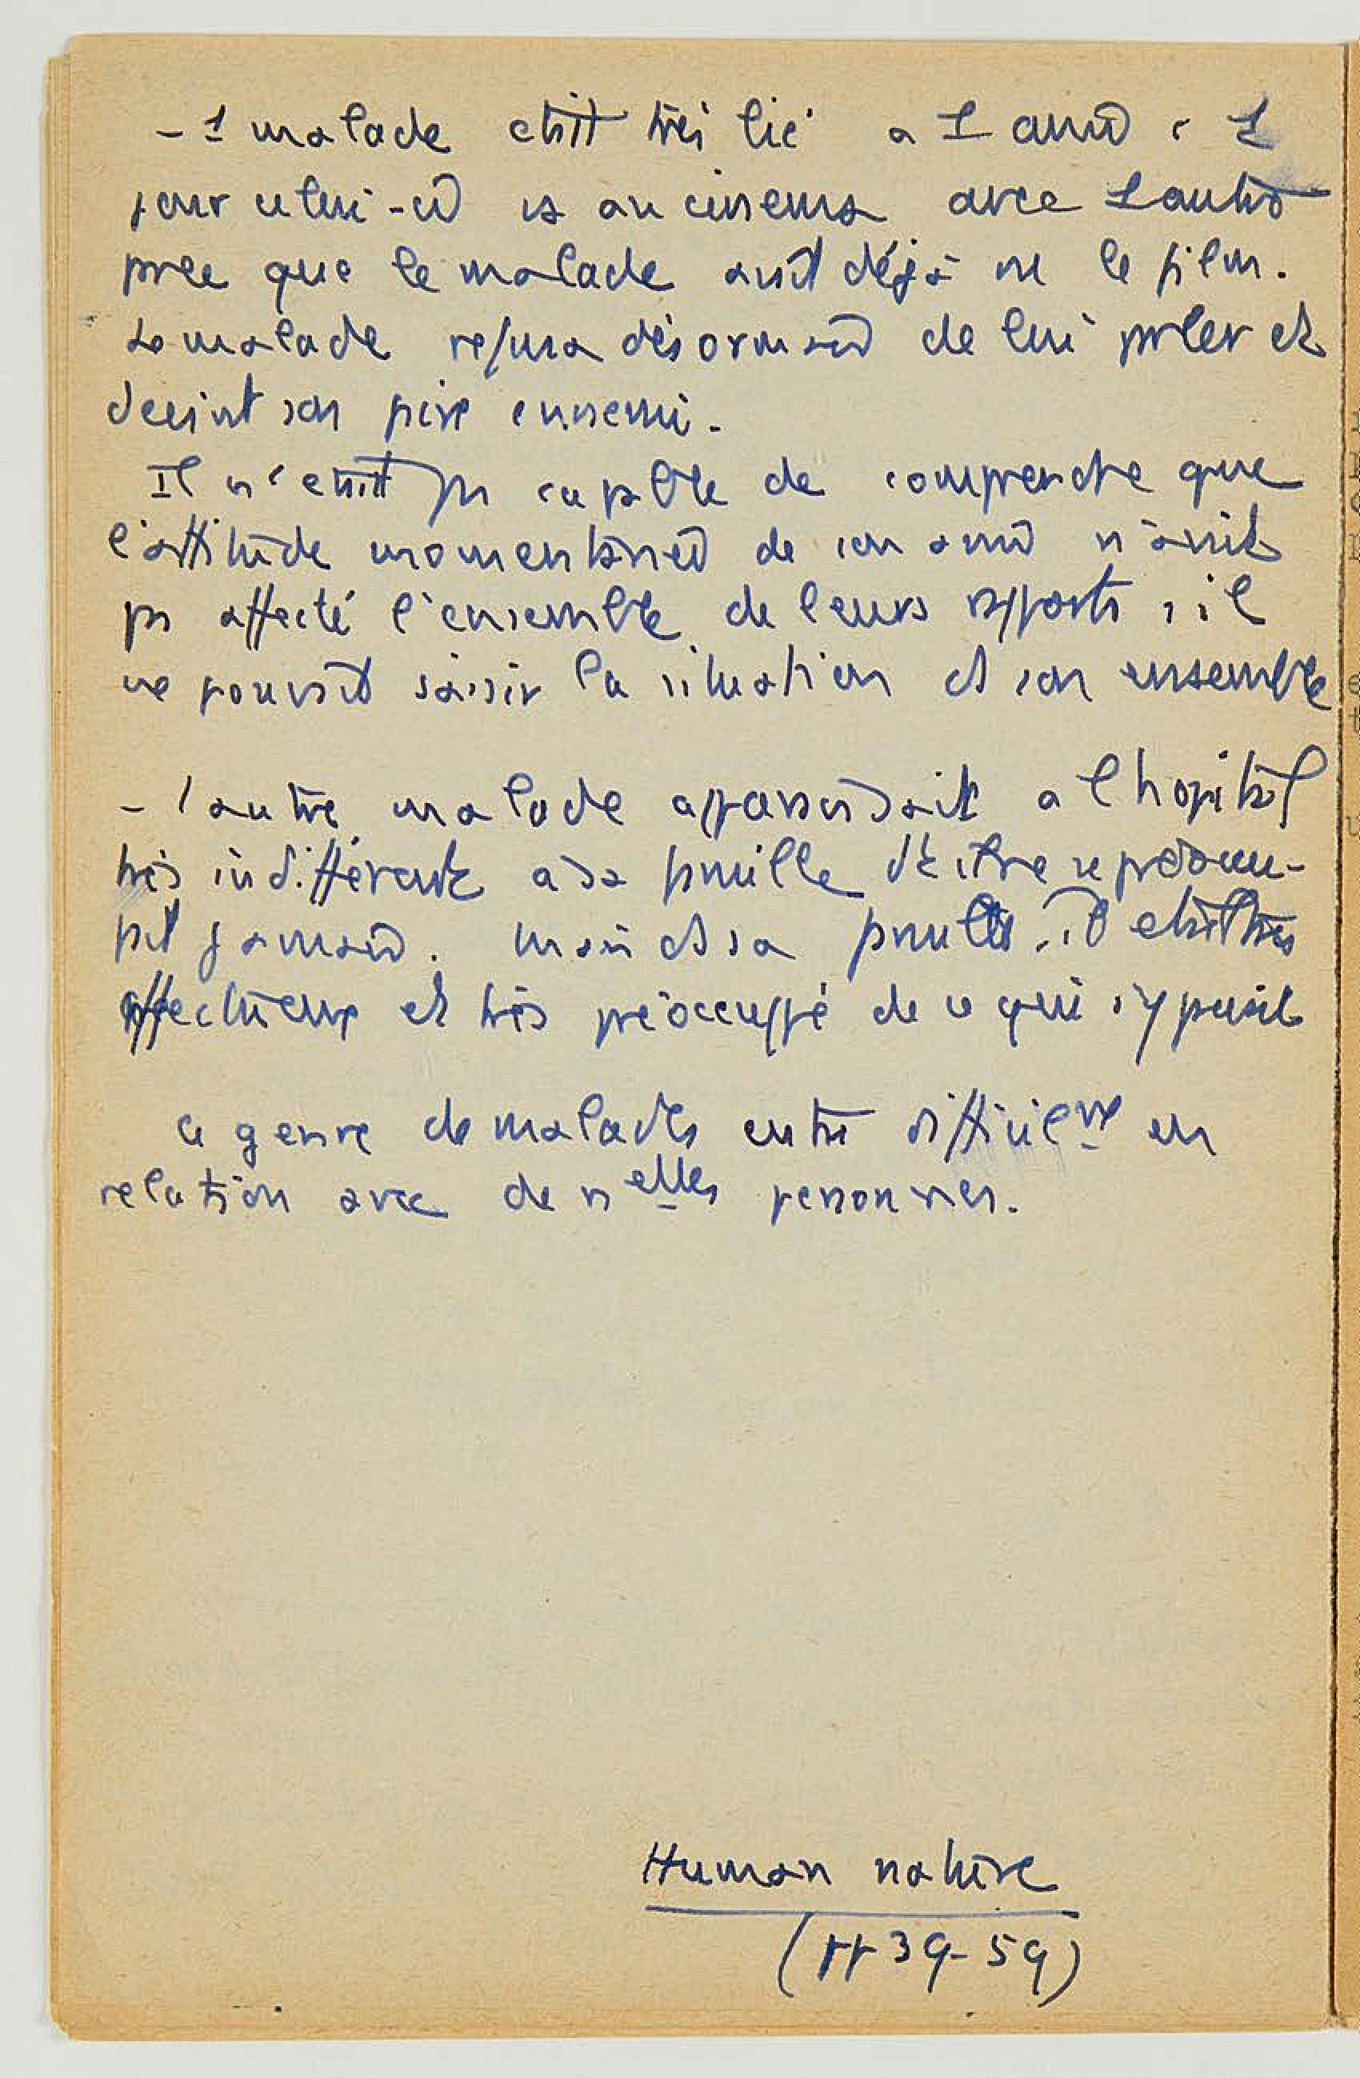 - 1 malade était très lié a 1 ami : 1
jour celui-ci va au cinema avec 1 autre
parce que le malade avait déjà vu le film.
Le malade refusa désormais de lui parler et
devint son pire ennemi.
Il n'était pas capable de comprendre que
l'attitude momentanée de son ami n'avait
pas affecté l'ensemble de leurs rapports ; il
ne pouvait saisir la situation ds son ensemble
- 1 autre malade apparaissait a l hopital
très indifférent a sa famille dt il ne se préoccu-
pait jamais. mais ds sa famille il était très
affectueux et très préoccupé de ce qui s'y passait
Ce genre de malades entre difficilemt en
relation avec de nelles personnes.
Human nature
(pp 39-59)